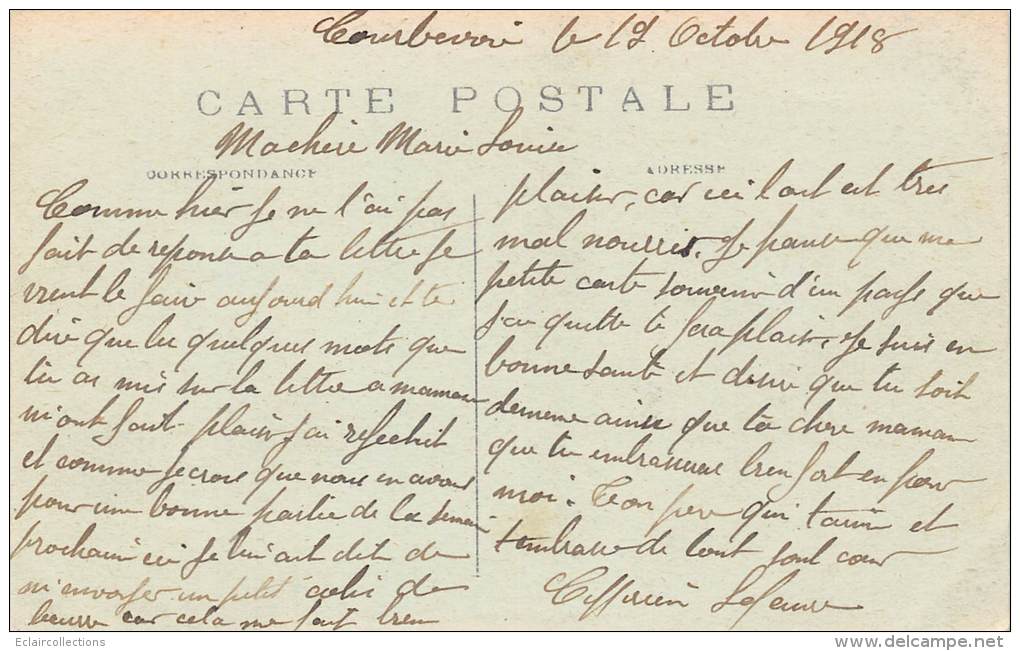 Courbevoie le 19 Octobre 1918
CARTE POSTALE
Machère Marie Louise
CORRESPONDANCE
Comme hier je ne t'ai pas
fait de reponse a ta lettre je
vient le faire aujourd hui et te
dire que les quelques mots que
tu as mis sur la lettre a maman
m'ont fait plaisir j'ai reflechit
et comme je crois que nous en avons
pour une bonne partie de la semaine
prochaine ici je lui ait dit de
m'envoyer un petit colis de
beurre car cela me fait bien
ADRESSE
plaisir, car ici l'ont est tres
mal nourris. Je pense que ma
petite carte souvenir d'un pays que
j'ai quitte te fera plaisir, Je suis en
bonne sante et desire que tu soit
de meme ainsi que ta chere maman
que tu embrasseras bien fort en pour
moi. Ton pere qui t'aime et
t'embrasse de tout sont cœur
Lefeuvre
Eclaircollections
delcampe.net